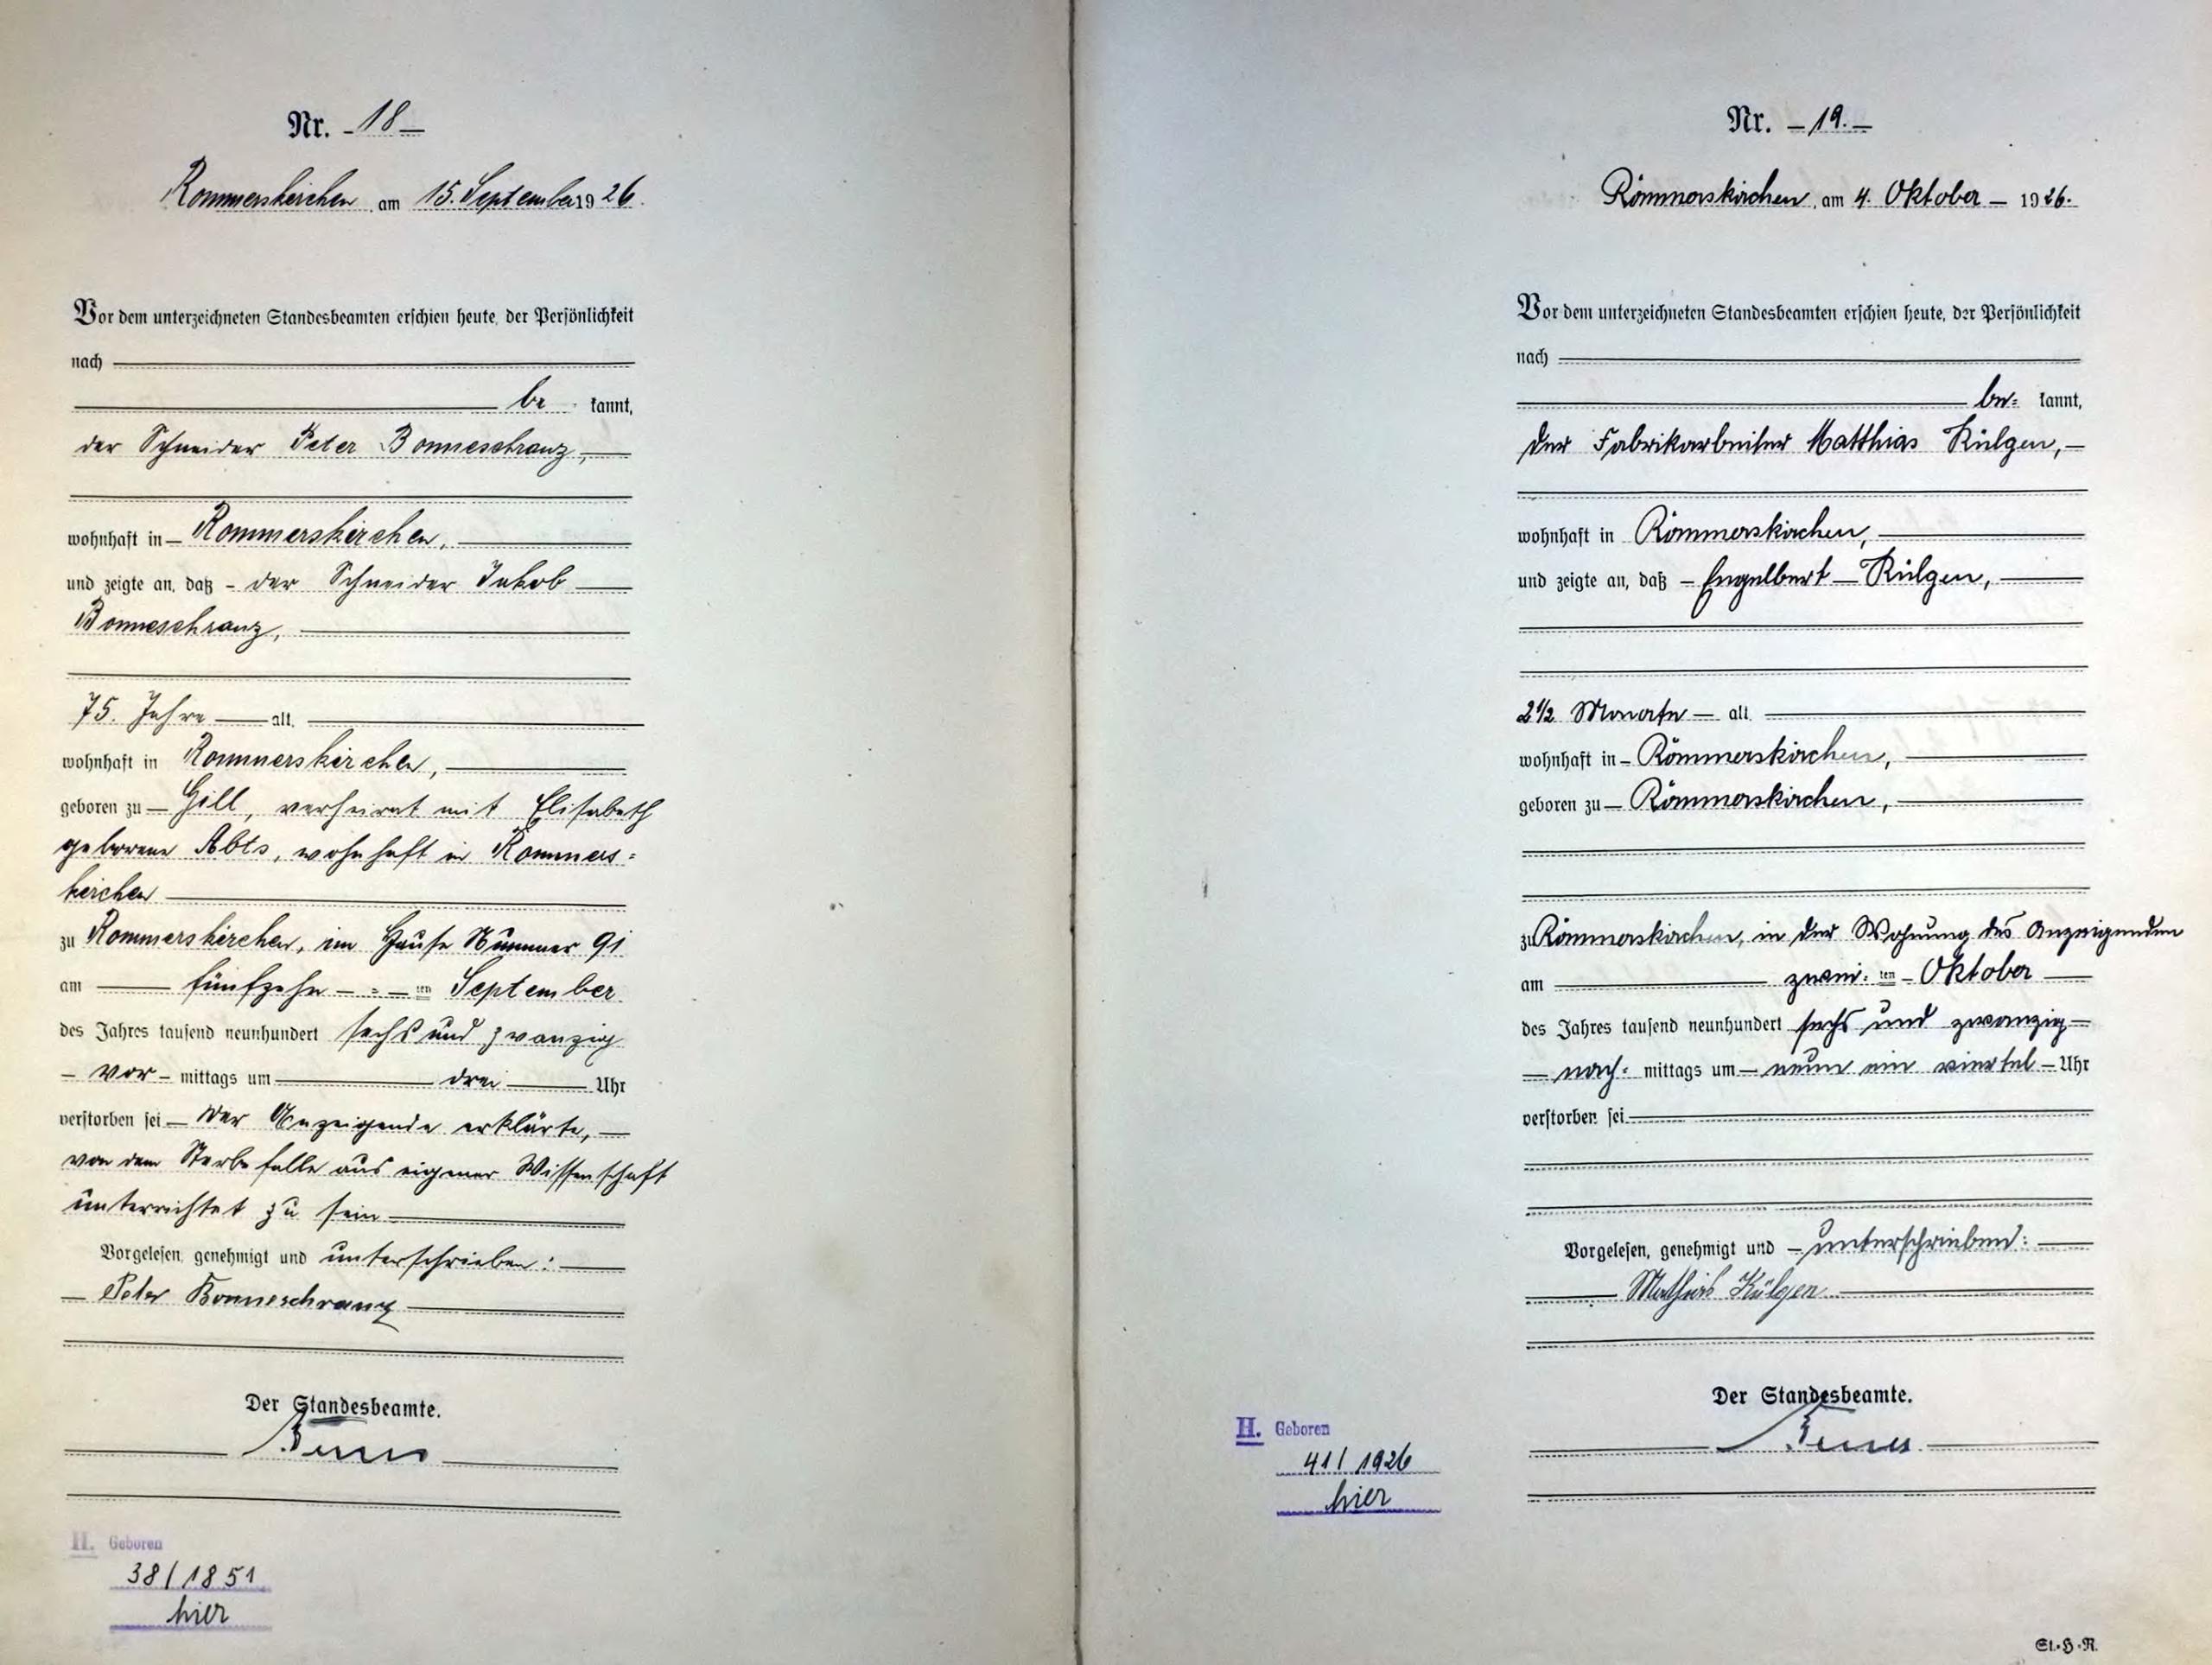 Nr. - 18 -
Rommerskirchen, am 15. September 1926.
Vor dem unterzeichneten Standesbeamten erschien heute, der Persönlichkeit
nach
be kannt,
der Schneider Peter Bonneschranz,
wohnhaft in - Rommerskirchen,
und zeigte an, daß - der Schneider Jakob
Bonneschranz,
75. Jahre - alt,
wohnhaft in Rommerskirchen,
geboren zu - Gill, verheirat mit Elisabeth
geborene Abts, wohnhaft in Rommers=
kirchen
zu Rommerskirchen, im Hause Nummer 91
am fünfzehn - = - ten September
des Jahres tausend neunhundert sechs und zwanzig
- vor - mittags um drei Uhr
verstorben sei - Der Anzeigende erklärte,
von dem Sterbefalle aus eigener Wissenschaft
unterrichtet zu sein
Vorgelesen, genehmigt und unterschrieben:
- Peter Bonneschranz
Der Standesbeamte.
H. Geboren
38/1851
hier
Nr. - 19. -
Rommerskirchen, am 4. Oktober - 1926.
Vor dem unterzeichneten Standesbeamten erschien heute, der Persönlichkeit
nach
be= kannt,
der Fabrikarbeiter Matthias Külgen,
wohnhaft in Rommerskirchen,
und zeigte an, daß - Engelbert - Külgen,
2 1/2 Monate - alt,
wohnhaft in - Rommerskirchen,
geboren zu - Rommerskirchen,
zu Rommerskirchen, in der Wohnung des Anzeigenden
am zwei= ten - Oktober
des Jahres tausend neunhundert sechs und zwanzig
- nach= mittags um - neun ein viertel - Uhr
verstorben sei.
Vorgelesen, genehmigt und - unterschrieben:
Mathias Külgen
Der Standesbeamte.
H. Geboren
41/1926
hier
St.H.R.